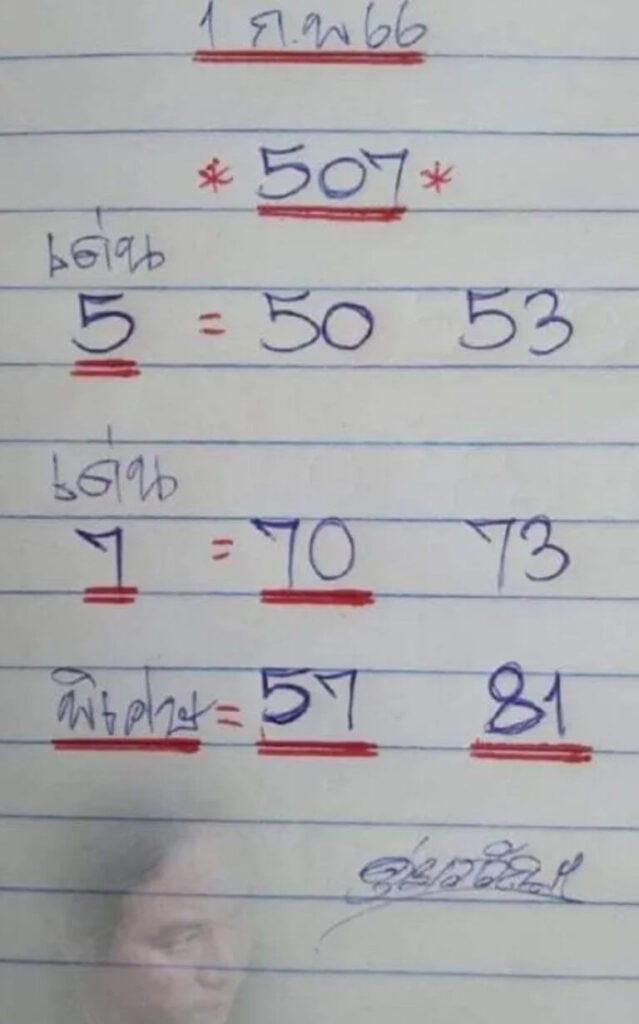 1 ก.พ 66
* 507 *
เด่น
5 = 50 53
เด่น
7 = 70 73
พิเศษ = 57 81